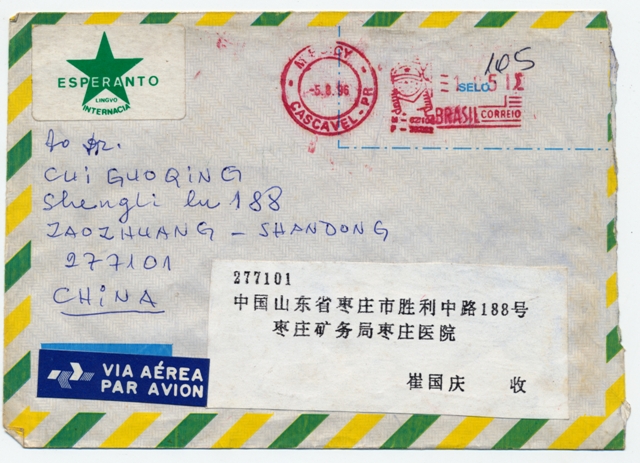 ESPERANTO
LINGVO
INTERNACIA
-5.8.96
CASCAVEL-PR
105
SELO
BRASIL CORREIO
to Dr.
CUI GUOQING
Shengli lu 188
ZAOZHUANG - SHANDONG
277101
CHINA
277101
中国山东省枣庄市胜利中路188号
枣庄矿务局枣庄医院
崔国庆 收
VIA AÉREA
PAR AVION